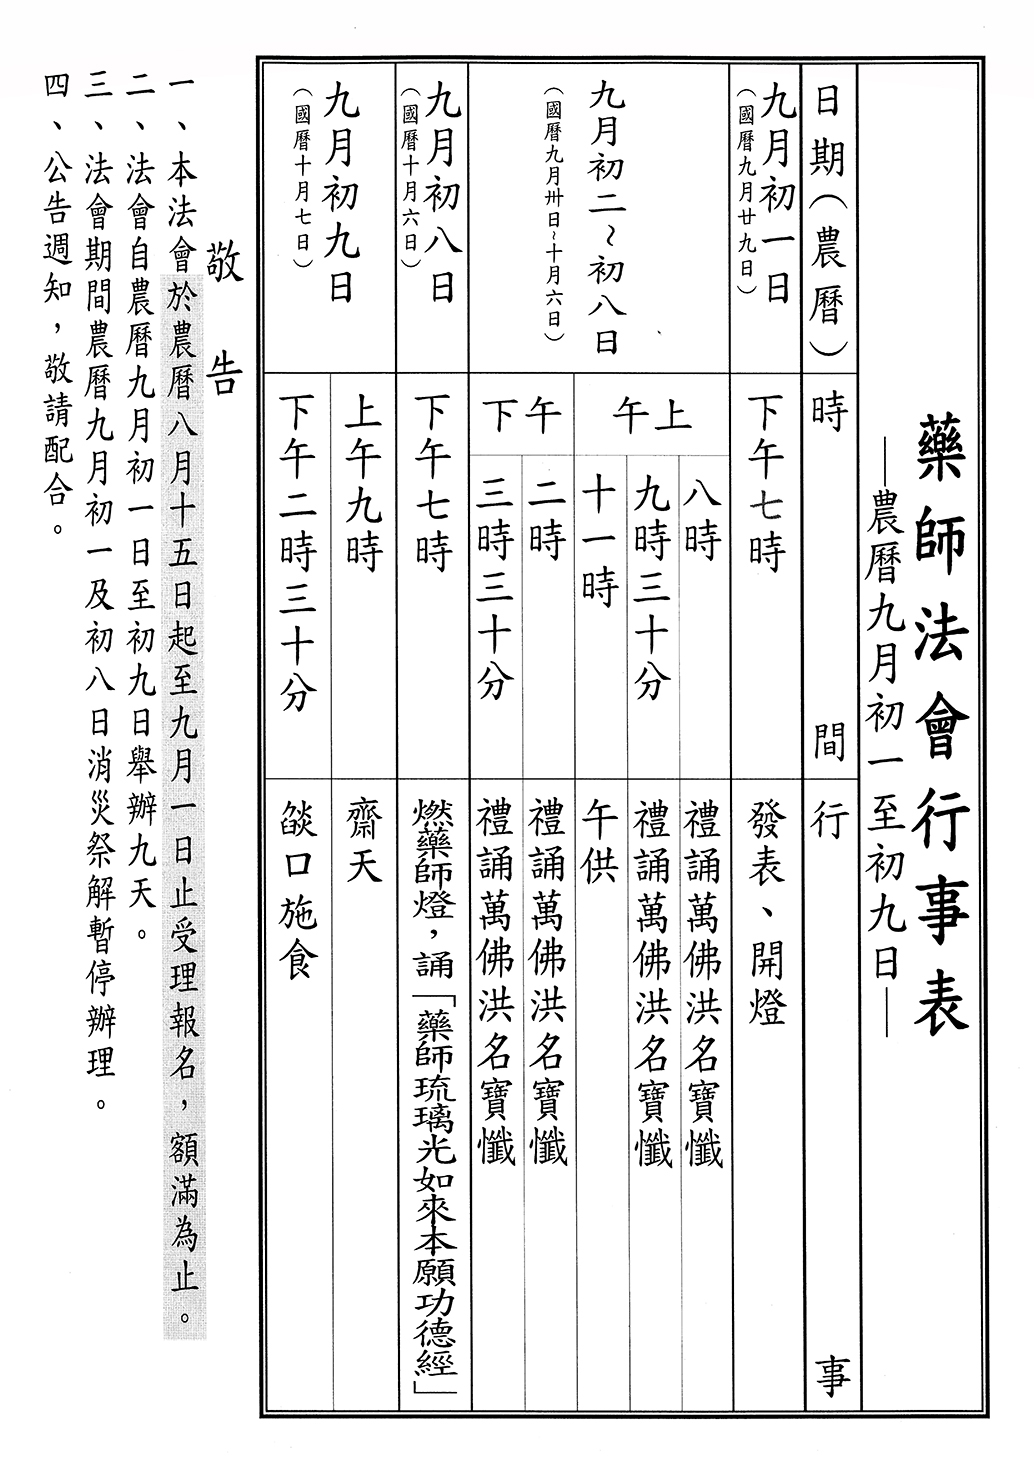 藥師法會行事表
—農曆九月初一至初九日—
日期（農曆）
時間
行事
九月初一日
（國曆九月廿九日）
下午七時
發表、開燈
九月初二～初八日
（國曆九月卅日～十月六日）
上午
八時
禮誦萬佛洪名寶懺
九時三十分
禮誦萬佛洪名寶懺
十一時
午供
下午
二時
禮誦萬佛洪名寶懺
三時三十分
禮誦萬佛洪名寶懺
九月初八日
（國曆十月六日）
下午七時
燃藥師燈，誦「藥師琉璃光如來本願功德經」
九月初九日
（國曆十月七日）
上午九時
齋天
下午二時三十分
燄口施食
敬告
一、本法會於農曆八月十五日起至九月一日止受理報名，額滿為止。
二、法會自農曆九月初一日至初九日舉辦九天。
三、法會期間農曆九月初一及初八日消災祭解暫停辦理。
四、公告週知，敬請配合。